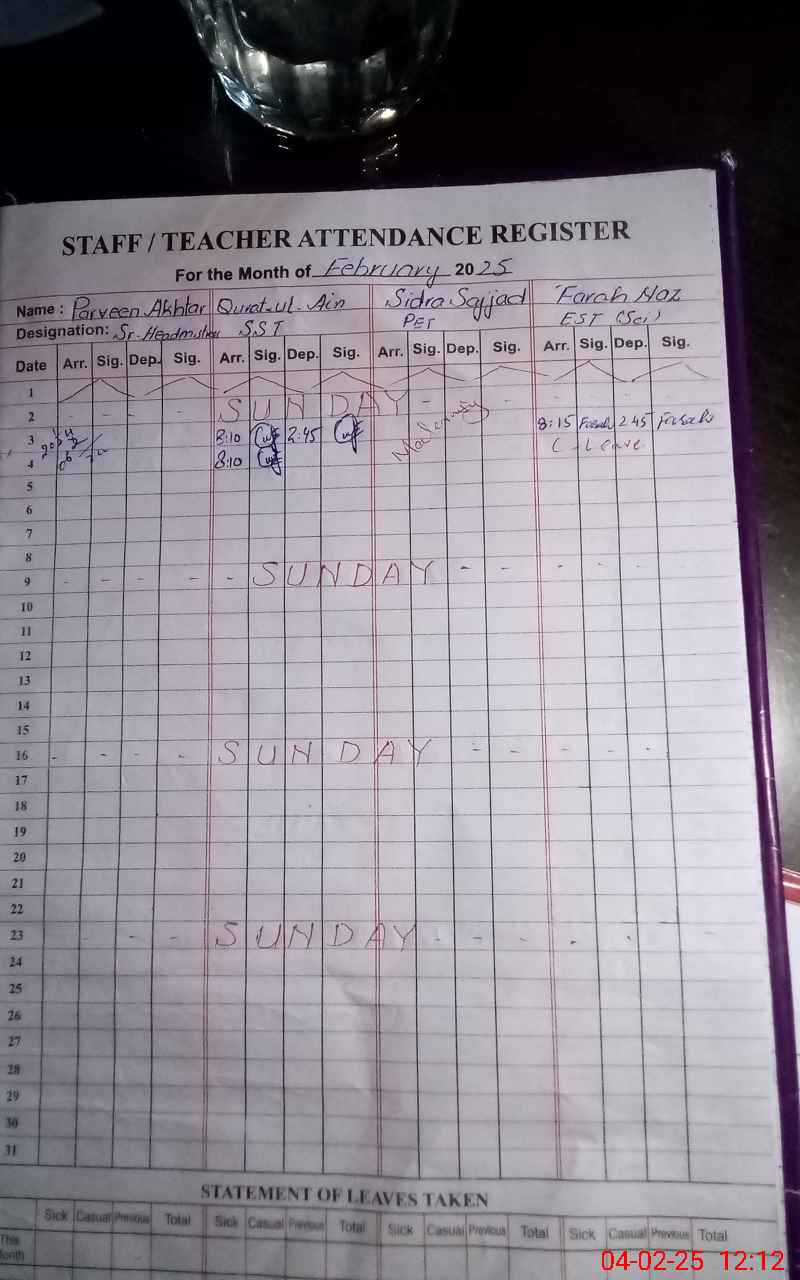 STAFF / TEACHER ATTENDANCE REGISTER
For the Month of February 2025
Name : Parveen Akhtar Qurat-ul-Ain Sidra Sajjad Farah Naz
Designation: Sr. Headmistress SST PET EST (Sci)
Date Arr. Sig. Dep. Sig. Arr. Sig. Dep. Sig. Arr. Sig. Dep. Sig. Arr. Sig. Dep. Sig.
1
2 - - - - SUNDAY - - - - - -
3 8:10 2:45 8:15 Farah 2:45 Farah
4 8:10 C-Leave
5
6
7
8
9 - - - - - SUNDAY - - - - - -
10
11
12
13
14
15
16 - - - - SUNDAY - - - - -
17
18
19
20
21
22
23 - - SUNDAY - - - - - -
24
25
26
27
28
29
30
31
STATEMENT OF LEAVES TAKEN
Sick Casual Previous Total Sick Casual Previous Total Sick Casual Previous Total Sick Casual Previous Total
This
Month
04-02-25 12:12